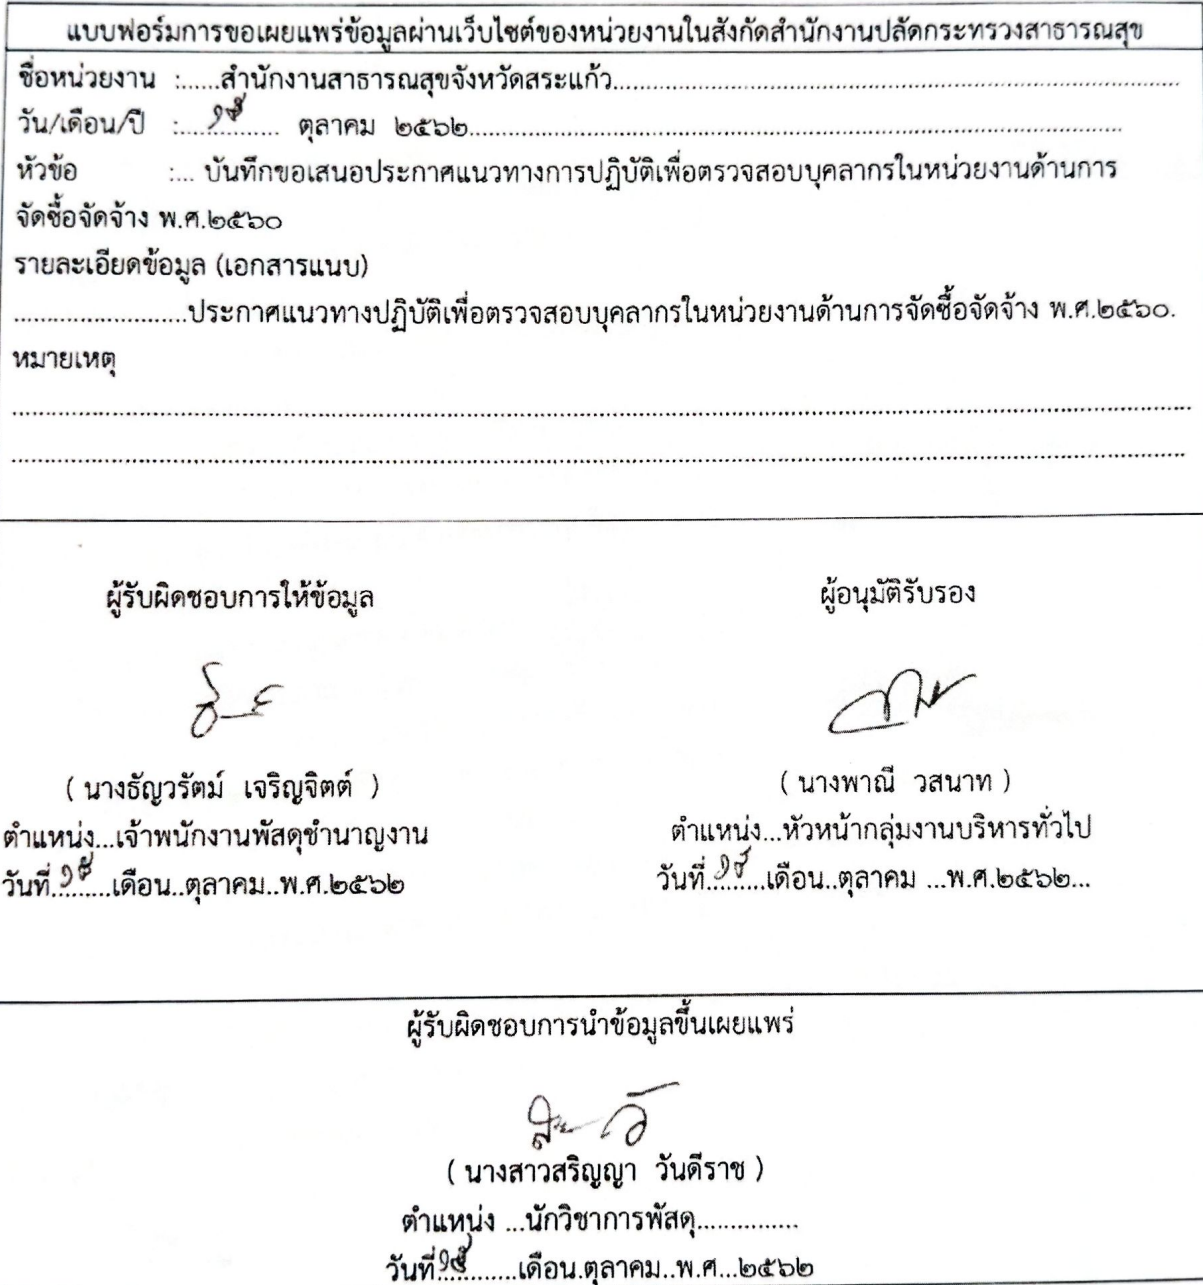 แบบฟอร์มการขอเผยแพร่ข้อมูลผ่านเว็บไซต์ของหน่วยงานในสังกัดสำนักงานปลัดกระทรวงสาธารณสุข
ชื่อหน่วยงาน :......สำนักงานสาธารณสุขจังหวัดสระแก้ว......
วัน/เดือน/ปี :...... ตุลาคม ๒๕๖๒......
หัวข้อ :... บันทึกขอเสนอประกาศแนวทางการปฏิบัติเพื่อตรวจสอบบุคลากรในหน่วยงานด้านการ
จัดซื้อจัดจ้าง พ.ศ.๒๕๖๐
รายละเอียดข้อมูล (เอกสารแนบ)
......ประกาศแนวทางปฏิบัติเพื่อตรวจสอบบุคลากรในหน่วยงานด้านการจัดซื้อจัดจ้าง พ.ศ.๒๕๖๐.
หมายเหตุ
ผู้รับผิดชอบการให้ข้อมูล
( นางธัญวรัตม์ เจริญจิตต์ )
ตำแหน่ง...เจ้าพนักงานพัสดุชำนาญงาน
วันที่......เดือน..ตุลาคม..พ.ศ.๒๕๖๒
ผู้อนุมัติรับรอง
( นางพาณี วสนาท )
ตำแหน่ง...หัวหน้ากลุ่มงานบริหารทั่วไป
วันที่......เดือน..ตุลาคม ...พ.ศ.๒๕๖๒...
ผู้รับผิดชอบการนำข้อมูลขึ้นเผยแพร่
( นางสาวสริญญา วันดีราช )
ตำแหน่ง ...นักวิชาการพัสดุ...............
วันที่......เดือน.ตุลาคม..พ.ศ...๒๕๖๒